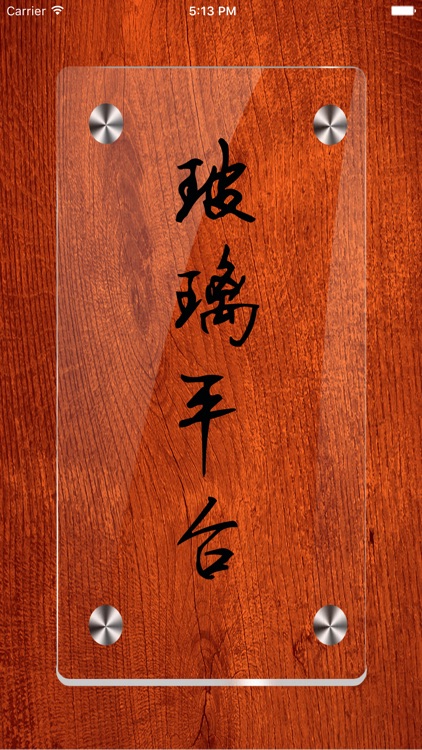 Carrier 5:13 PM
玻璃平台